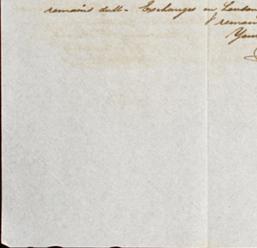 remains dull - Exchanges on London
I remain
Your